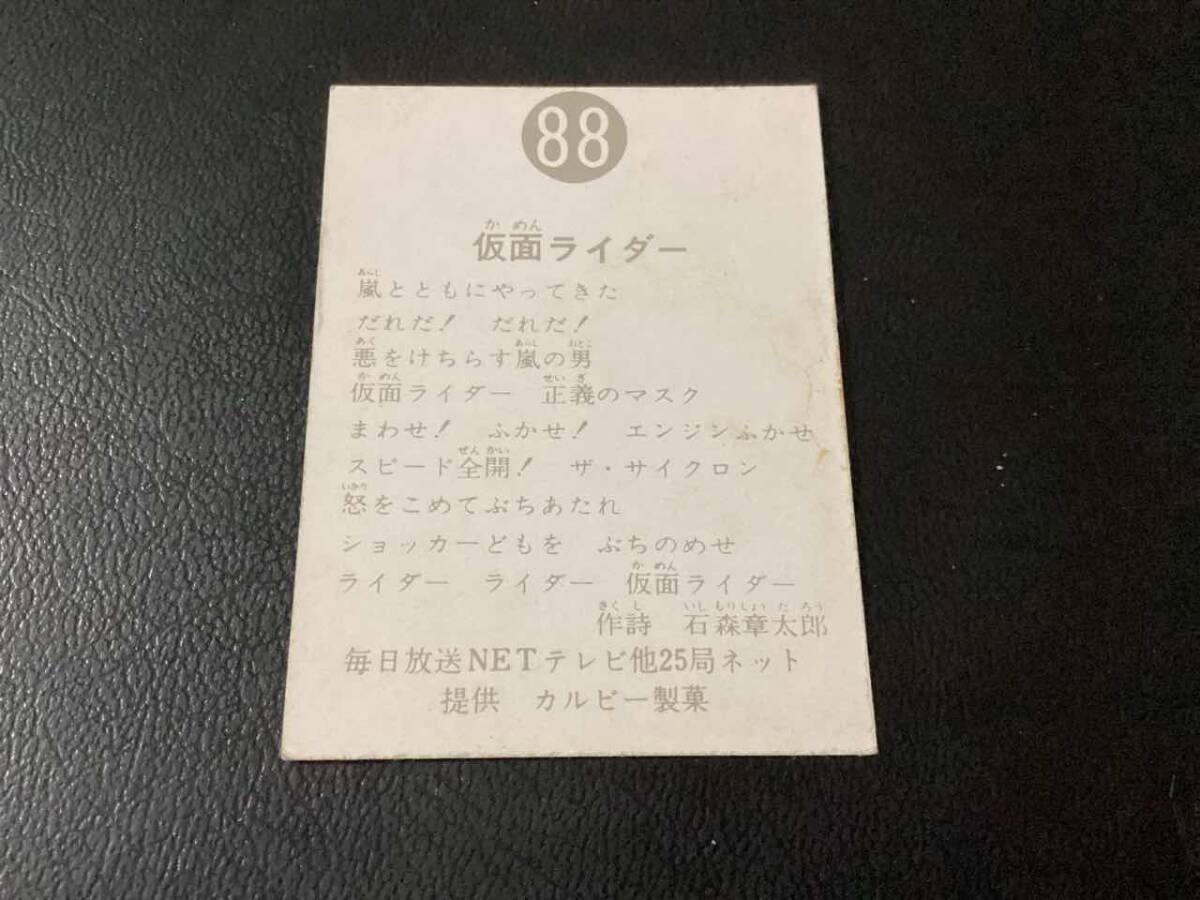 88
仮面ライダー
嵐とともにやってきた
だれだ！ だれだ！
悪をけちらす嵐の男
仮面ライダー 正義のマスク
まわせ！ ふかせ！ エンジンふかせ
スピード全開！ ザ・サイクロン
怒をこめてぶちあたれ
ショッカーどもを ぶちのめせ
ライダー ライダー 仮面ライダー
作詩 石森章太郎
毎日放送NETテレビ他25局ネット
提供 カルビー製菓